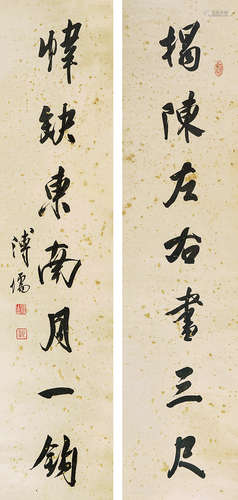 揭陳左右畫三尺
幃缺東南月一鈎
溥儒